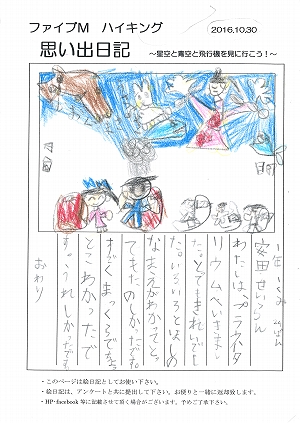 ファイブM ハイキング
2016.10.30
思い出日記
~星空と青空と飛行機を見に行こう!~
一年
わたしは、プラネタ
リウムへいきまし
た。とてもきれいでし
た。いろいろとほしの
なまえがわかってと
てもたのしかったです。
すごくまっくろでした。
とこあかったで
す。うれしかったです。
おわり
・このページは絵日記としてお使い下さい。
・絵日記は、アンケートと共に提出して下さい。お便りと一緒に返却致します。
・HP・facebook 等に記載させて頂く場合がございます。予めご了承下さい。